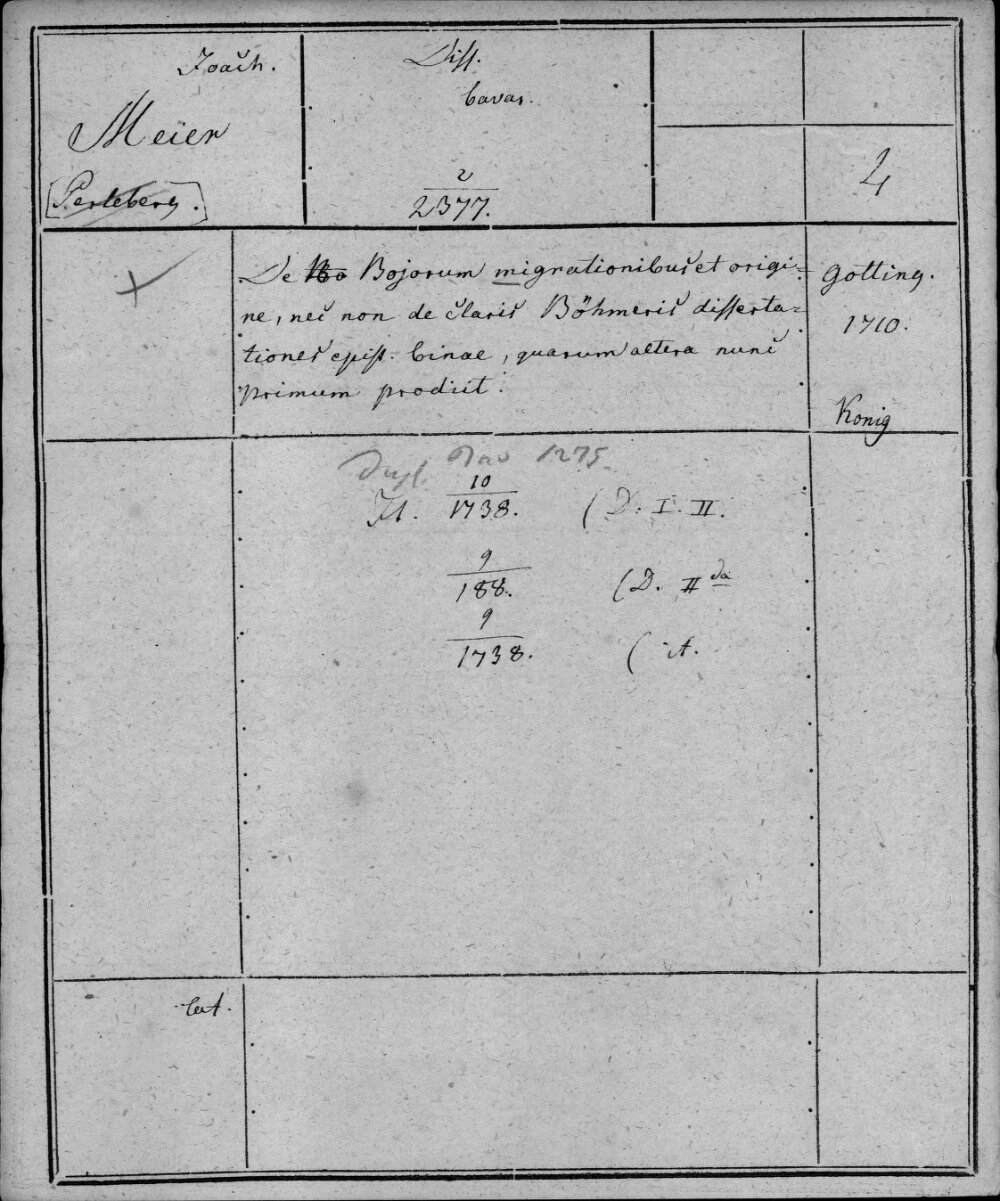 Joach.
Meier
Perleberg.
Diss.
bavar.
2
2377.
4
De Bojorum migrationibus et origi=
ne, nec non de claris Böhmeris disserta=
tiones epist. binae, quarum altera nunc
primum prodiit.
Gotting.
1710.
König
Dupl. 1275.
It. 10
1738. (D. I. II.
9
188. (D. II da
9
1738. ( it.
lat.